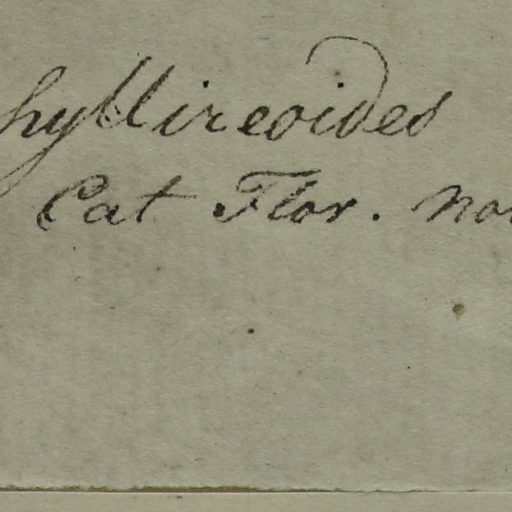 hyllireoides
Cat Flor. nor